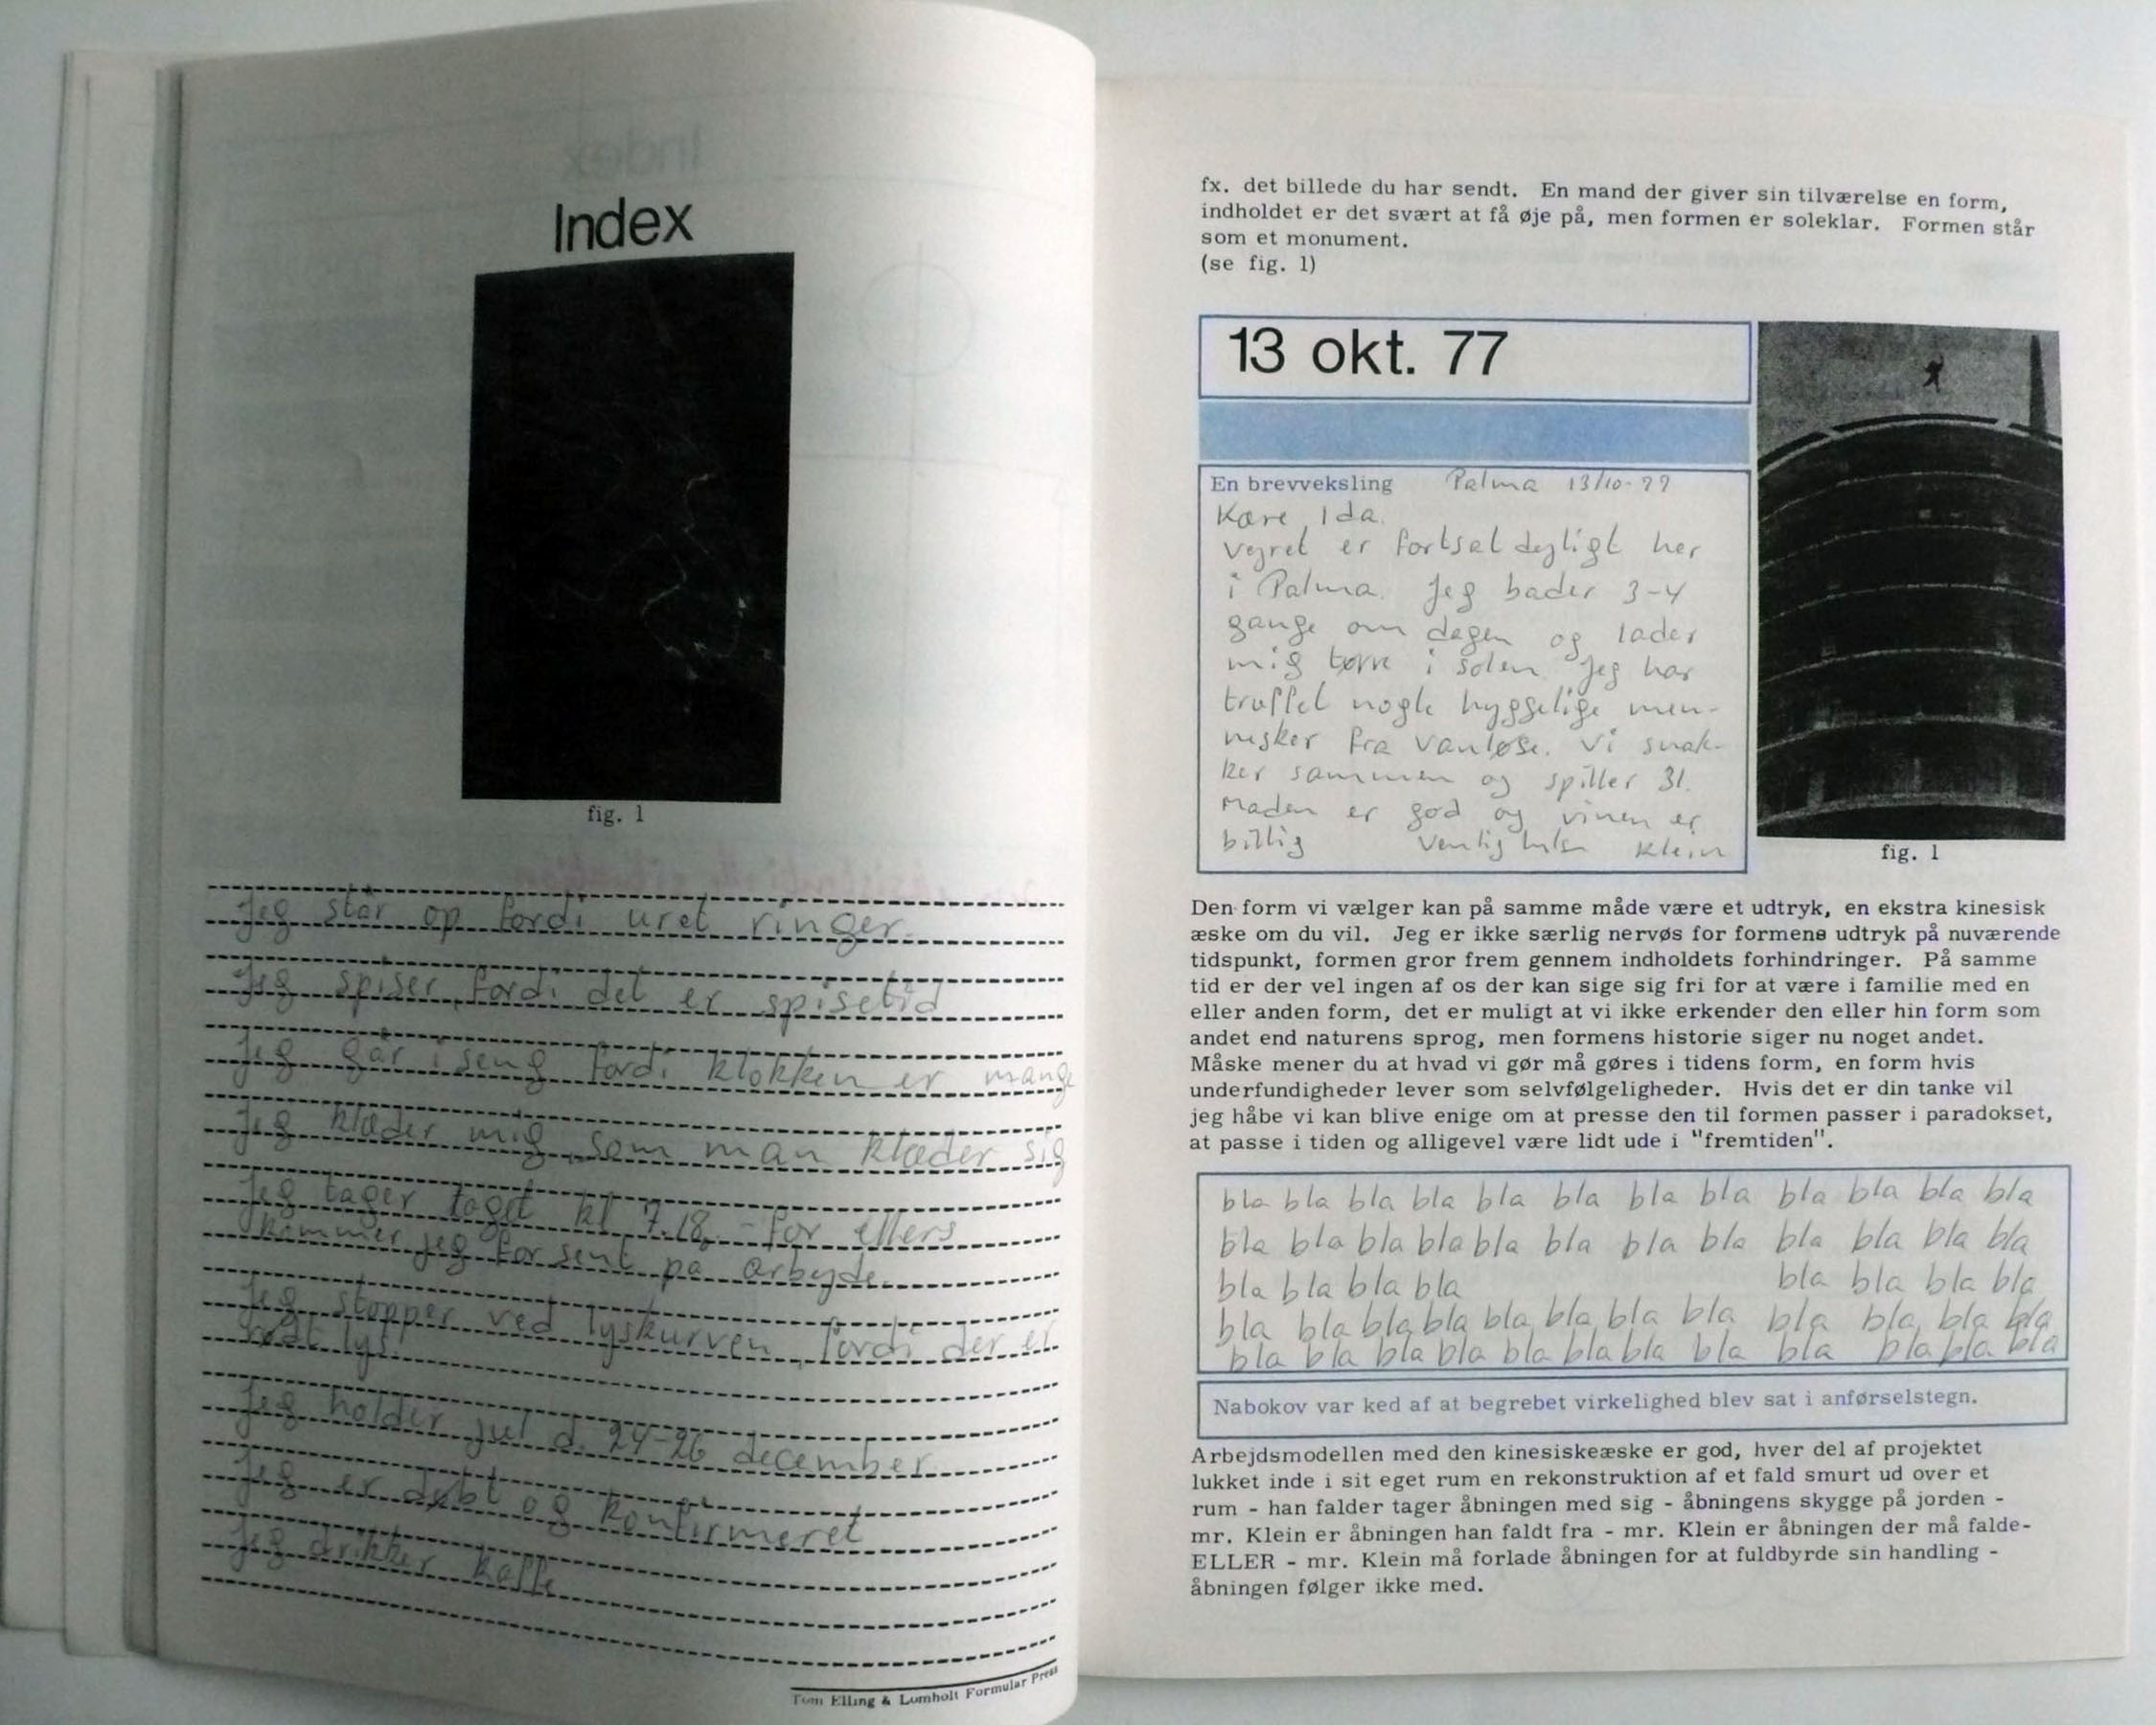 Index
fig. 1
Jeg står op fordi uret ringer.
Jeg spiser, fordi det er spisetid
Jeg går i seng fordi klokken er mange
Jeg klæder mig, som man klæder sig
Jeg tager toget kl 7.18, - for ellers
kommer jeg for sent på arbejde.
Jeg stopper ved lyskurven, fordi der er
rødt lys.
Jeg holder jul d. 24-26 december.
Jeg er døbt og konfirmeret
Jeg drikker kaffe
Tom Elling & Lomholt Formular Press
fx. det billede du har sendt. En mand der giver sin tilværelse en form,
indholdet er det svært at få øje på, men formen er soleklar. Formen står
som et monument.
(se fig. 1)
13 okt. 77
En brevveksling Palma 13/10-77
Kære Ida.
Vejret er fortsat dejligt her
i Palma. Jeg bader 3-4
gange om dagen og lader
mig tørre i solen. Jeg har
truffet nogle hyggelige men-
nesker fra Vanløse. Vi snak-
ker sammen og spiller 31.
Maden er god og vinen er
billig Venlig hilsen Klein
fig. 1
Den form vi vælger kan på samme måde være et udtryk, en ekstra kinesisk
æske om du vil. Jeg er ikke særlig nervøs for formens udtryk på nuværende
tidspunkt, formen gror frem gennem indholdets forhindringer. På samme
tid er der vel ingen af os der kan sige sig fri for at være i familie med en
eller anden form, det er muligt at vi ikke erkender den eller hin form som
andet end naturens sprog, men formens historie siger nu noget andet.
Måske mener du at hvad vi gør må gøres i tidens form, en form hvis
underfundigheder lever som selvfølgeligheder. Hvis det er din tanke vil
jeg håbe vi kan blive enige om at presse den til formen passer i paradokset,
at passe i tiden og alligevel være lidt ude i "fremtiden".
bla bla bla bla bla bla bla bla bla bla bla bla
bla bla bla bla bla bla bla bla bla bla bla bla
bla bla bla bla bla bla bla bla
bla bla bla bla bla bla bla bla bla bla bla bla
bla bla bla bla bla bla bla bla bla bla bla bla
Nabokov var ked af at begrebet virkelighed blev sat i anførselstegn.
Arbejdsmodellen med den kinesiskeæske er god, hver del af projektet
lukket inde i sit eget rum en rekonstruktion af et fald smurt ud over et
rum - han falder tager åbningen med sig - åbningens skygge på jorden -
mr. Klein er åbningen han faldt fra - mr. Klein er åbningen der må falde-
ELLER - mr. Klein må forlade åbningen for at fuldbyrde sin handling -
åbningen følger ikke med.